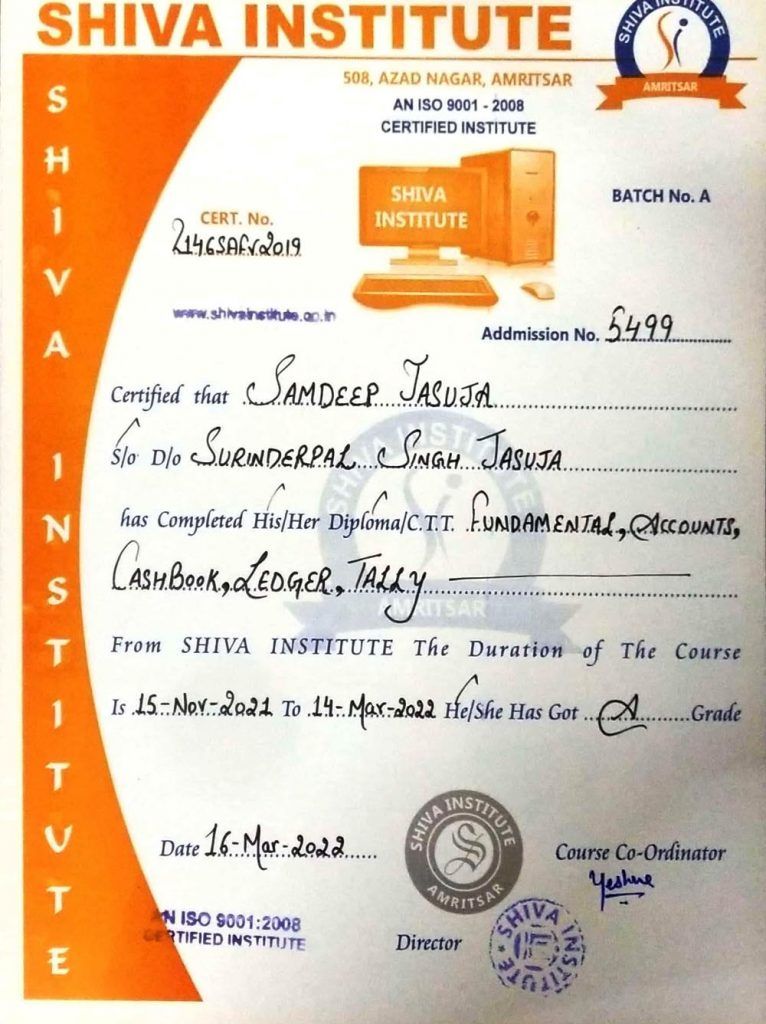 SHIVA INSTITUTE
SHIVA INSTITUTE
AMRITSAR
508, AZAD NAGAR, AMRITSAR
AN ISO 9001 - 2008
CERTIFIED INSTITUTE
SHIVA INSTITUTE
SHIVA
INSTITUTE
BATCH No. A
CERT. No.
www.shivainstitute.co.in
Addmission No. 5499
Certified that SAMDEEP JASUJA
S/o D/o SURINDERPAL SINGH JASUJA
has Completed His/Her Diploma/C.T.T. FUNDAMENTAL, ACCOUNTS,
CASHBOOK, LEDGER, TALLY
SHIVA INSTITUTE
AMRITSAR
From SHIVA INSTITUTE The Duration of The Course
Is 15-Nov-2021 To 14-Mar-2022 He/She Has Got A Grade
Date 16-Mar-2022
SHIVA INSTITUTE
AMRITSAR
Course Co-Ordinator
AN ISO 9001:2008
CERTIFIED INSTITUTE
Director
SHIVA INSTITUTE